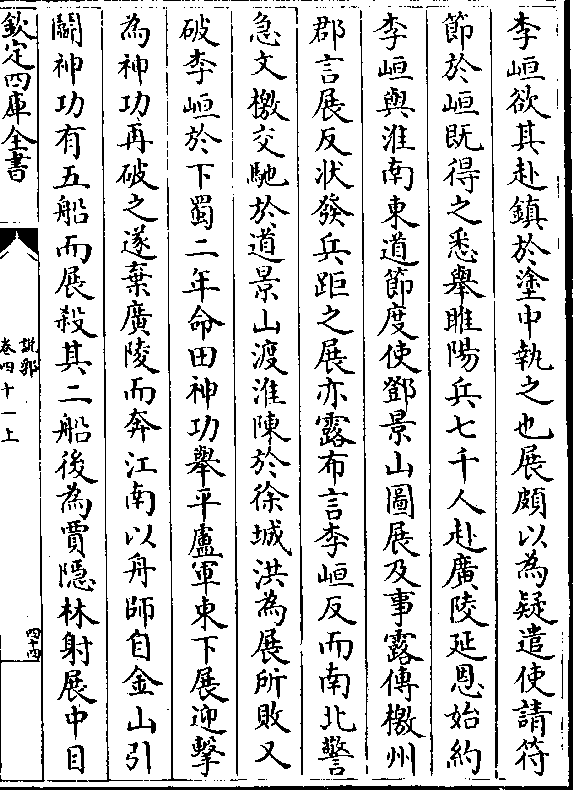 李峘欲其赴鎮於塗中執之也展頗以為疑遣使請符
節於峘既得之悉舉睢陽兵七千人赴廣陵延恩始約
李峘與淮南東道節度使鄧景山圖展及事露傳檄州
郡言展反状發兵距之展亦露布言李峘反而南北警
急文檄交馳於道景山渡淮陳於徐城洪為展所敗又
破李峘於下蜀二年命田神功舉平盧軍東下展迎擊
為神功再破之遂棄廣陵而奔江南以舟師自金山引
鬭神功有五船而展殺其二船後為賈隠林射展中目
欽定四庫全書
說郛
卷四十一上
四十四